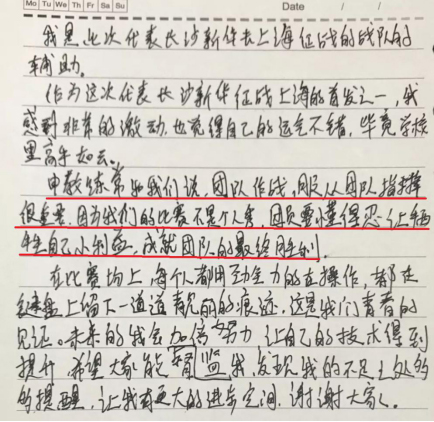 Mo Tu We Th Fr Sa Su Date / /
我是此次代表长沙新华去上海征战的战队的
辅助。
作为这次代表长沙新华征战上海的首发之一,我
感到非常的激动,也觉得自己的运气不错,毕竟学校
里高手如云。
申教练常和我们说,团队作战,服从团队指挥
很重要,因为我们的比赛不是个人秀,团员要懂得忍让牺
牲自己小利益,成就团队的最终胜利。
在比赛场上,每个人都用尽全力的去操作,都在
键盘上留下一道道靓丽的痕迹,这是我们青春的
见证。未来的我会加倍努力,让自己的技术得到
提升,希望大家能督监我,发现我的不足之处多多
的提醒,让我有更大的进步空间,谢谢大家。